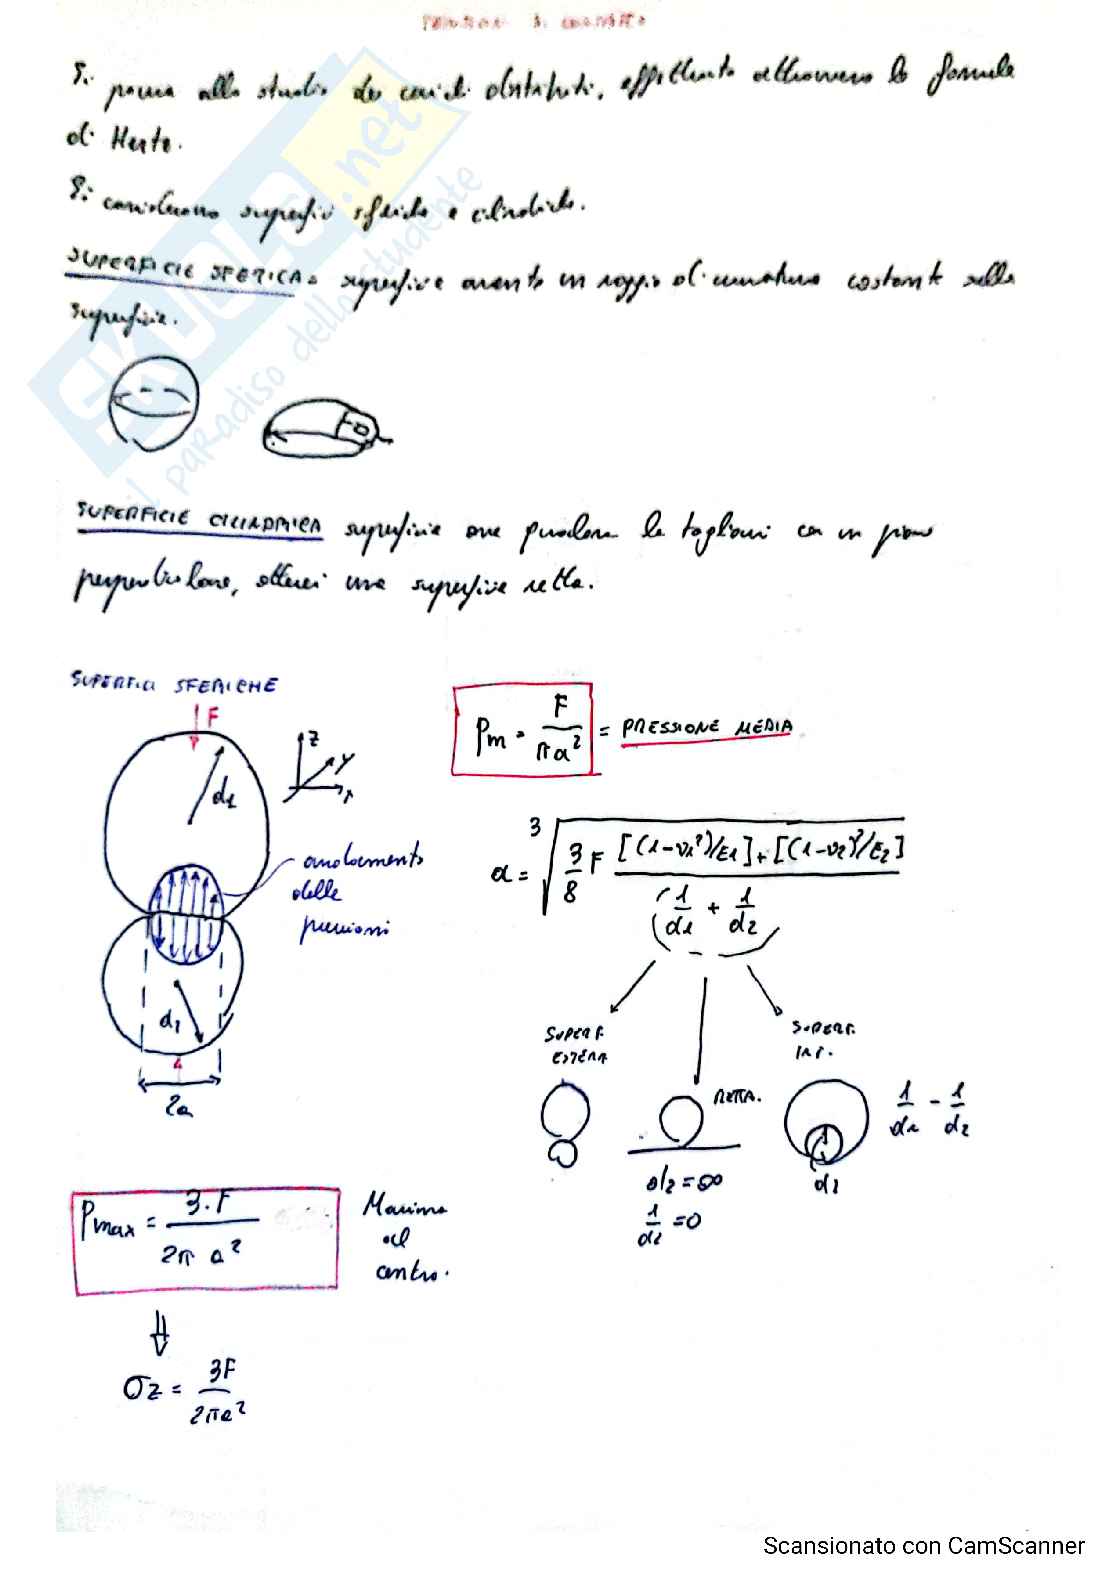 Si passa allo studio dei carichi distribuiti, effettuato attraverso le formule
di Hertz.
Si considerano superfici sferiche e cilindriche.
SUPERFICIE SFERICA = superficie avente un raggio di curvatura costante sulla
superficie.
SUPERFICIE CILINDRICA superficie ove prendono le taglioni con un piano
perpendicolare, ottieni una superficie retta.
SUPERFICI SFERICHE
F
d2
z
y
x
andamento
delle
pressioni
d1
2a
Pm = F / πa² = PRESSIONE MEDIA
a = ³√ 3/8 F [(1-ν1²)/E1] + [(1-ν2)²/E2] / (1/d1 + 1/d2)
SUPERF.
ESTERNA
RETTA.
d2 = ∞
1/d2 = 0
SUPERF.
INT.
1/d1 - 1/d2
d1
Pmax = 3·F / 2π a²
Massima
al
centro.
σz = 3F / 2πa²
SKUOLA.net
il paradiso dello studente
Scansionato con CamScanner